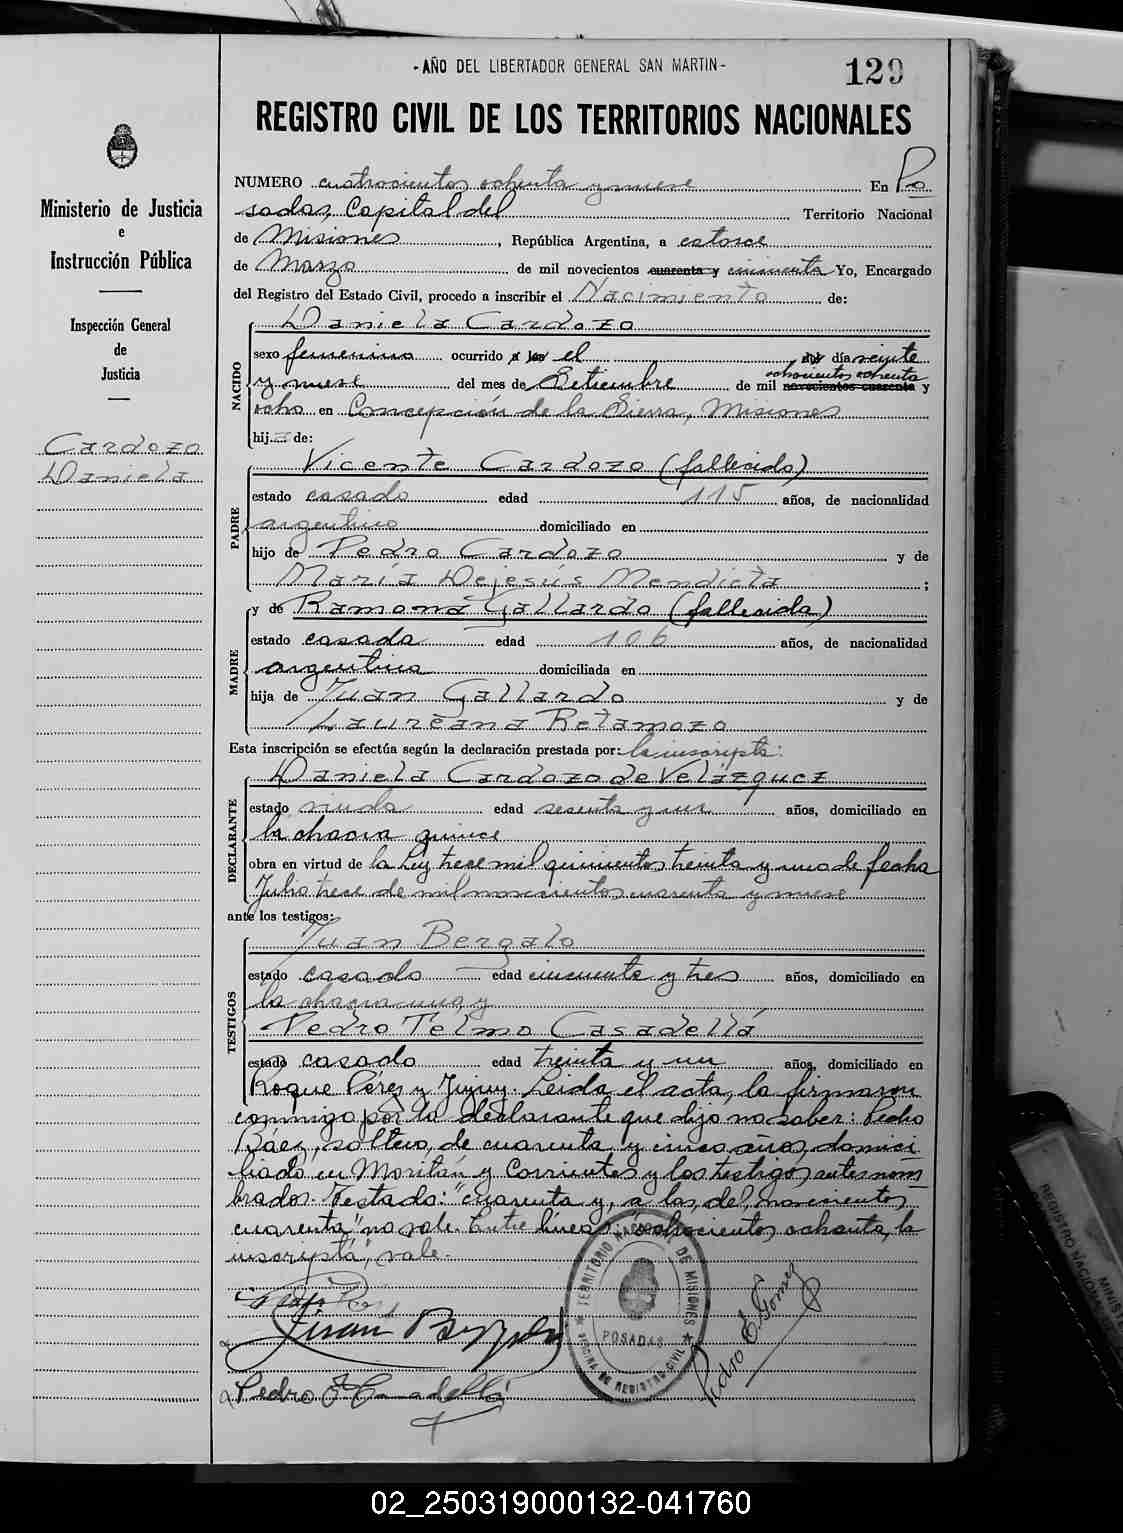 -AÑO DEL LIBERTADOR GENERAL SAN MARTIN-
129
REGISTRO CIVIL DE LOS TERRITORIOS NACIONALES
Ministerio de Justicia
e
Instrucción Pública
Inspección General
de
Justicia
Cardozo
Daniela
NUMERO cuatrocientos ochenta y nueve En Po
sadas, Capital del Territorio Nacional
de Misiones, República Argentina, a catorce
de Marzo de mil novecientos cuarenta y cincuenta Yo, Encargado
del Registro del Estado Civil, procedo a inscribir el Nacimiento de:
NACIDO
Daniela Cardozo
sexo femenino ocurrido a las el del día veinte
ochocientos ochenta
y nueve del mes de Setiembre de mil novecientos cuarenta y
ocho en Concepción de la Sierra, Misiones
hija de:
PADRE
Vicente Cardozo (fallecido)
estado casado edad 115 años, de nacionalidad
argentino domiciliado en
hijo de Pedro Cardozo y de
María Dejesús Mendieta;
MADRE
y de Ramona Gallardo (fallecida)
estado casada edad 106 años, de nacionalidad
argentina domiciliada en
hija de Juan Gallardo y de
Laureana Retamozo
Esta inscripción se efectúa según la declaración prestada por: la inscripta:
DECLARANTE
Daniela Cardozo de Velázquez
estado viuda edad sesenta y un años, domiciliado en
la chacra quince
obra en virtud de la Ley trece mil quinientos treinta y uno de fecha
Julio trece de mil novecientos cuarenta y nueve
ante los testigos:
TESTIGOS
Juan Bergalo
estado casado edad cincuenta y tres años, domiciliado en
la chacra una, y
Pedro Telmo Casadellá
estado casado edad treinta y un años, domiciliado en
Roque Pérez y Jujuy. Leida el acta, la firmaron
conmigo por la declarante que dijo no saber: Pedro
Báez, soltero, de cuarenta y cinco años, domici
liado en Moritán y Corrientes y los testigos antes nom
brados. Testado: "cuarenta y, a las, del, novecientos
cuarenta", no vale. Entre líneas: "ochocientos ochenta, la
inscripta", vale.
Juan
Pedro T Casadellá
Pedro E. Gomez
TERRITORIO NACIONAL DE MISIONES
POSADAS
OFICINA DE REGISTRO CIVIL
REGISTRO NACIONAL
MINISTE
02_250319000132-041760